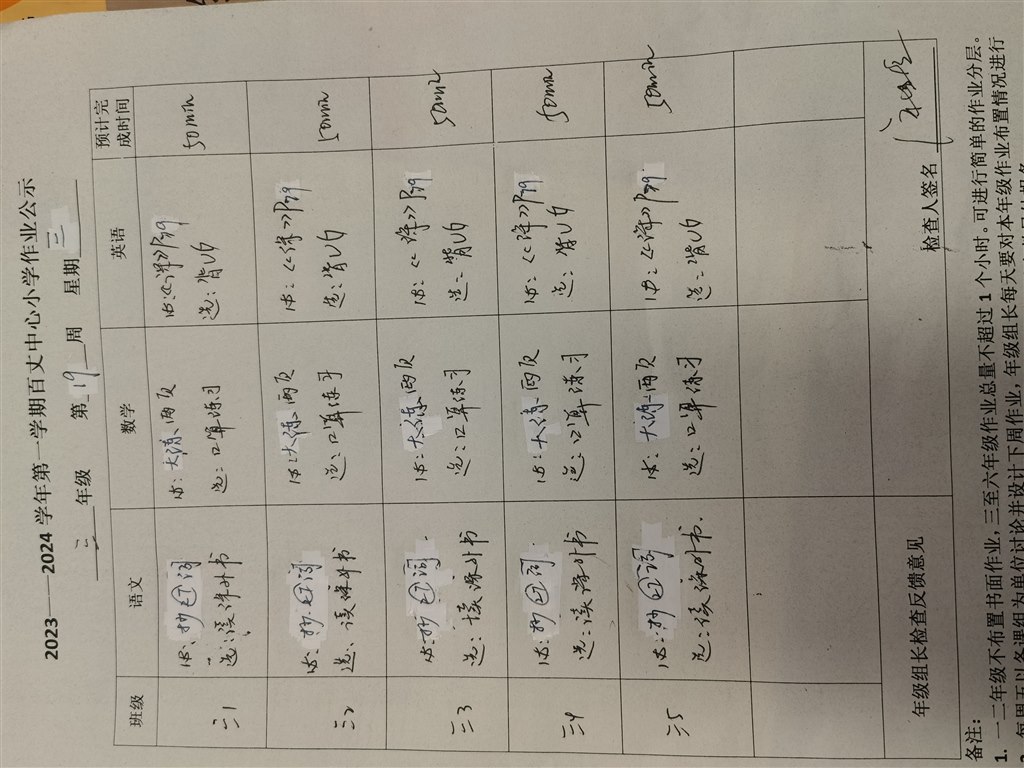 2023——2024学年第一学期百丈中心小学作业公示
三 年级 第 19 周 星期 三
班级 语文 数学 英语 预计完成时间
三1 必:抄四词 选:读课外书 必:大练两页 选:口算练习 必:《课》P79 选:背U6 50min
三2 必:抄四词 选:读课外书 必:大练两页 选:口算练习 必:《课》P79 选:背U6 50min
三3 必:抄四词 选:读课外书 必:大练两页 选:口算练习 必:《课》P79 选:背U6 50min
三4 必:抄四词 选:读课外书 必:大练两页 选:口算练习 必:《课》P79 选:背U6 50min
三5 必:抄四词 选:读课外书 必:大练两页 选:口算练习 必:《课》P79 选:背U6 50min
年级组长检查反馈意见 检查人签名
备注:
1. 一二年级不布置书面作业,三至六年级作业总量不超过1个小时。可进行简单的作业分层。
2. 每周五以备课组为单位讨论并设计下周作业,年级组长每天要对本年级作业布置情况进行